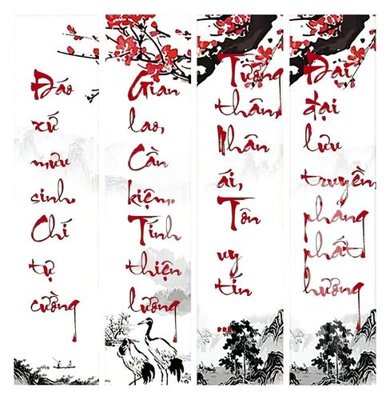 Đáo
xứ
mưu
sinh,
Chí
tự
cường
Gian
lao,
Cần
kiệm,
Tính
thiện
lương
Tương
thân,
Nhân
ái,
Tôn
uy
tín
...
Đại
đại
lưu
truyền
phảng
phất
hương